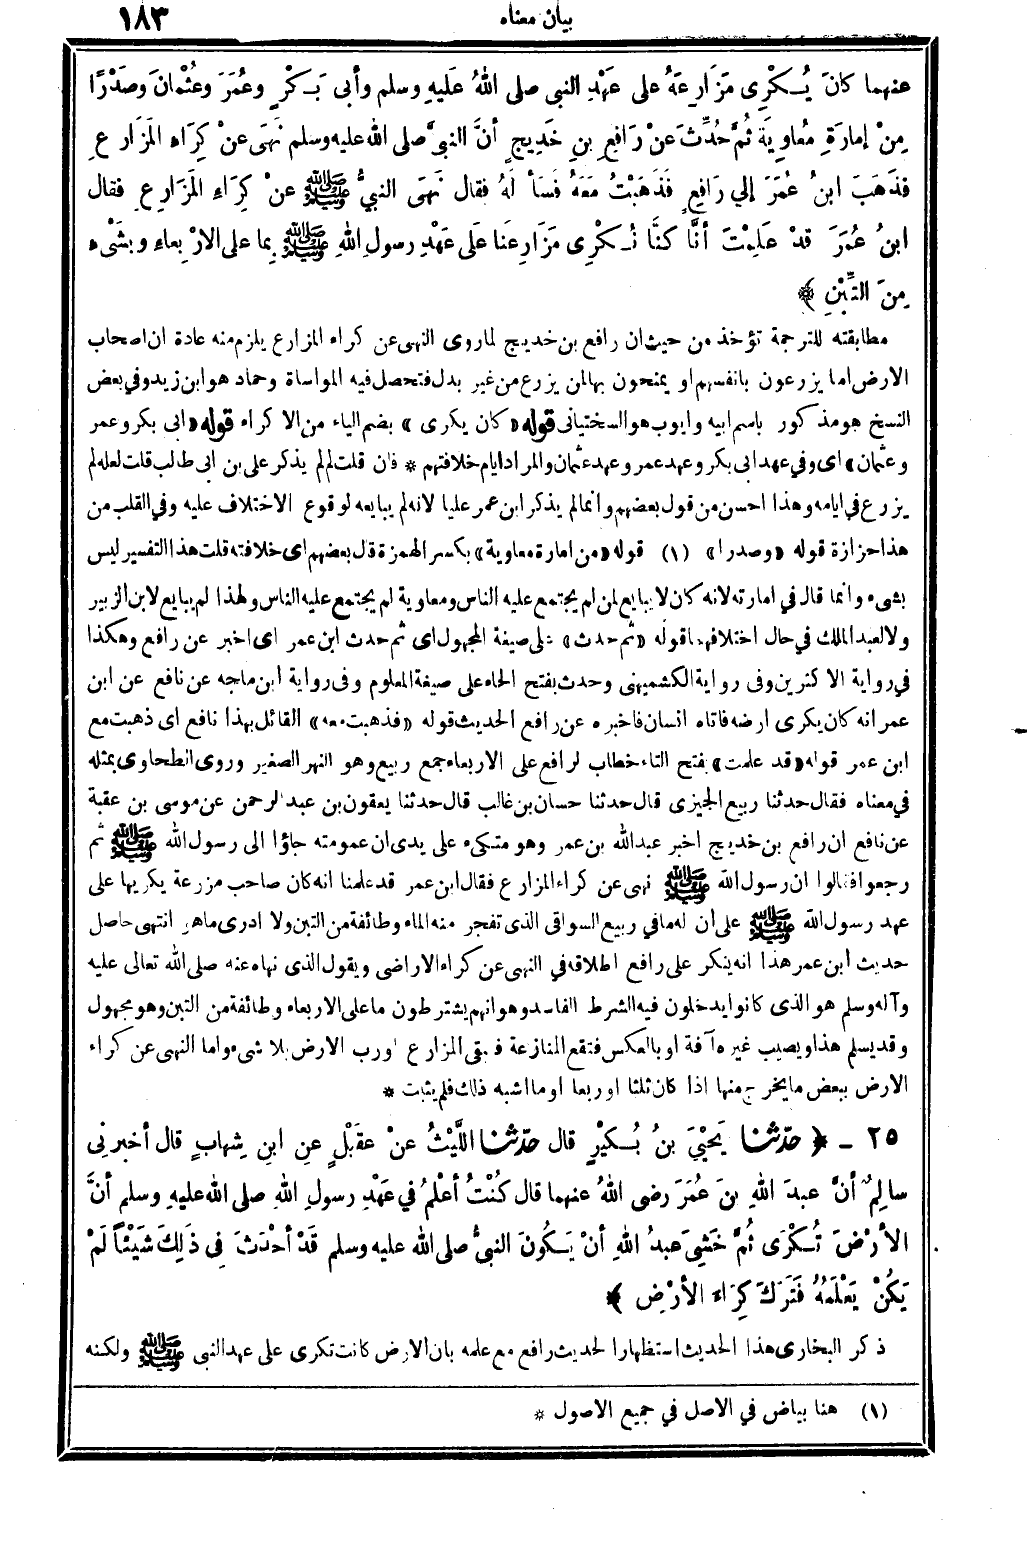 بيان معناه ١٨٣
عنهما كانَ يُكْرِى مَزَارِعَهُ على عَهْدِ النبى صلى اللهُ عَليهِ وسلم وأبى بَكْرٍ وعُمَرَ وعُثْمانَ وصَدْرًا
مِنْ إمارَةِ مُعاوِيَةَ ثُمَّ حُدِّثَ عَنْ رَافِعِ بنِ خَدِيجٍ أنَّ النبىَّ صلى الله عليه وسلم نَهَى عنْ كِرَاءِ المَزَارِعِ
فذَهَبَ ابنُ عُمَرَ إلي رَافِعٍ فَذَهَبْتُ مَعَهُ فَسَأَلَهُ فقال نَهَى النبيُّ ﷺ عنْ كِرَاءِ المَزَارِعِ فقال
ابنُ عُمَرَ قدْ عَلِمْتَ أنَّا كنَّا نُكْرِى مَزَارِعَنَا عَلَى عَهْدِ رسولِ اللهِ ﷺ بِما على الارْبعاءِ وبشْىءٍ
مِنَ التِّبْنِ ﴾
مطابقته للترجمة تؤخذ من حيث ان رافع بن خديج لما روى النهى عن كراء المزارع يلزم منه عادة ان اصحاب
الارض اما يزرعون بانفسهم او يمنحون بها لمن يزرع من غير بدل فتحصل فيه المواساة وحماد هو ابن زيد وفي بعض
النسخ هو مذكور باسم ابيه وايوب هو السختيانى قوله «كان يكرى» بضم الياء من الاكراء قوله «ابى بكر وعمر
وعثمان» اى وفي عهد ابى بكر وعهد عمر وعهد عثمان والمراد ايام خلافتهم * فان قلت لم لم يذكر على بن ابى طالب قلت لعله لم
يزرع في ايامه وهذا احسن من قول بعضهم وانما لم يذكر ابن عمر عليا لانه لم يبايعه لوقوع الاختلاف عليه وفي القلب من
هذا حزازة قوله «وصدرا» (١) قوله «من امارة معاوية» بكسر الهمزة قال بعضهم اى خلافته قلت هذا التفسير ليس
بشىء وانما قال في امارته لانه كان لا يبايع لمن لم يجتمع عليه الناس ومعاوية لم يجتمع عليه الناس ولهذا لم يبايع لابن الزبير
ولا لعبد الملك في حال اختلافهما قوله «ثم حدث» على صيغة المجهول اى ثم حدث ابن عمر اى اخبر عن رافع وهكذا
في رواية الاكثرين وفى رواية الكشميهنى وحدث بفتح الحاء على صيغة المعلوم وفى رواية ابن ماجه عن نافع عن ابن
عمر انه كان يكرى ارضه فاتاه انسان فاخبره عن رافع الحديث قوله «فذهبت معه» القائل بهذا نافع اى ذهبت مع
ابن عمر قوله «قد علمت» بفتح التاء خطاب لرافع على الاربعاء جمع ربيع وهو النهر الصغير وروى الطحاوى بمثله
في معناه فقال حدثنا ربيع الجيزى قال حدثنا حسان بن غالب قال حدثنا يعقون بن عبد الرحمن عن موسى بن عقبة
عن نافع ان رافع بن خديج اخبر عبد الله بن عمر وهو متكىء على يدى ان عمومته جاؤا الى رسول الله ﷺ ثم
رجعوا فقالوا ان رسول الله ﷺ نهى عن كراء المزارع فقال ابن عمر قد علمنا انه كان صاحب مزرعة يكريها على
عهد رسول الله ﷺ على أن له ما في ربيع السواقى الذى تفجر منه الماء وطائفة من التبن ولا ادرى ماهر انتهى حاصل
حديث ابن عمر هذا انه ينكر على رافع اطلاقه في النهى عن كراء الاراضى ويقول الذى نهاه عنه صلى الله تعالى عليه
وآله وسلم هو الذى كانوا يدخلون فيه الشرط الفاسد وهو انهم يشترطون ما على الاربعاء وطائفة من التبن وهو مجهول
وقد يسلم هذا ويصيب غيره آفة او بالعكس فتقع المنازعة فيبقى المزارع اورب الارض بلا شىء واما النهى عن كراء
الارض ببعض ما يخرج منها اذا كان ثلثا او ربعا او ما اشبه ذلك فلم يثبت *
٢٥ ـ ﴿ حَدَّثَنَا يَحْيَىٰ بنُ بُكَيْرٍ قال حَدَّثَنَا اللَّيْثُ عنْ عقَيْلٍ عنِ ابنِ شِهابٍ قال أخبرنِى
سالِمٌ أنَّ عبدَ اللهِ بنَ عُمَرَ رضى اللهُ عنهما قال كُنْتُ أعْلَمُ في عَهْدِ رسولِ اللهِ صلى الله عليهِ وسلم أنَّ
الأرْضَ تُكْرَى ثُمَّ خَشِىَ عبدُ اللهِ أنْ يَكُونَ النبىُّ صلى الله عليه وسلم قَدْ أحْدَثَ فِى ذَلِكَ شَيْئاً لَمْ
يَكُنْ يَعْلَمُهُ فَتَرَكَ كِرَاءَ الأرْضِ ﴾
ذكر البخارى هذا الحديث استظهارا لحديث رافع مع علمه بان الارض كانت تكرى على عهد النبى ﷺ ولكنه
(١) هنا بياض في الاصل في جميع الاصول *